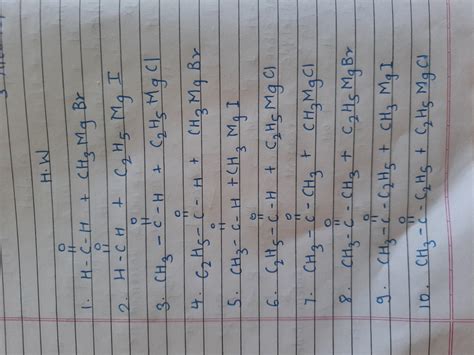 H.W
O
1. H-C-H + CH3MgBr
O
2. H-CH + C2H5MgI
O
3. CH3-C-H + C2H5MgCl
O
4. C2H5-C-H + CH3MgBr
O
5. CH3-C-H + CH3MgI
O
6. C2H5-C-H + C2H5MgCl
O
7. CH3-C-CH3 + CH3MgCl
O
8. CH3-C-CH3 + C2H5MgBr
O
9. CH3-C-C2H5 + CH3MgI
O
10. CH3-C-C2H5 + C2H5MgCl